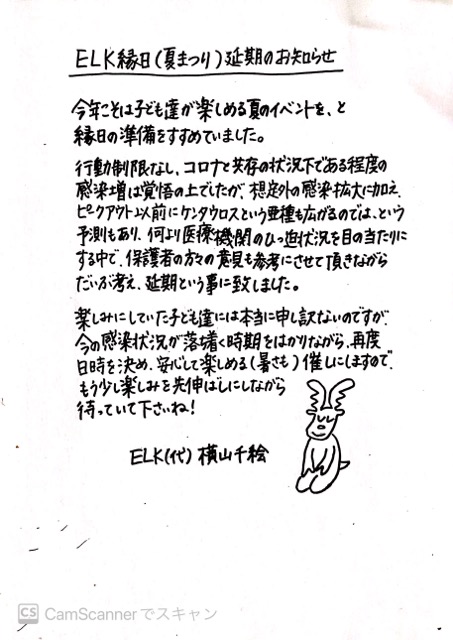 ELK縁日(夏まつり)延期のお知らせ
今年こそは子ども達が楽しめる夏のイベントを、と
縁日の準備をすすめていました。
行動制限なし、コロナと共存の状況下である程度の
感染増は覚悟の上でしたが、想定外の感染拡大に加え、
ピークアウト以前にケンタウロスという亜種も広がるのでは、という
予測もあり、何より医療機関のひっ迫状況を目の当たりに
する中で、保護者の方々の意見も参考にさせて頂きながら
だいぶ考え、延期という事に致しました。
楽しみにしていた子ども達には本当に申し訳ないのですが、
今の感染状況が落ち着く時期をはかりながら、再度
日時を決め、安心して楽しめる(暑さも)催しにしますので、
もう少し楽しみを先伸ばしにしながら
待っていて下さいね!
ELK(代)横山千絵
CS CamScannerでスキャン